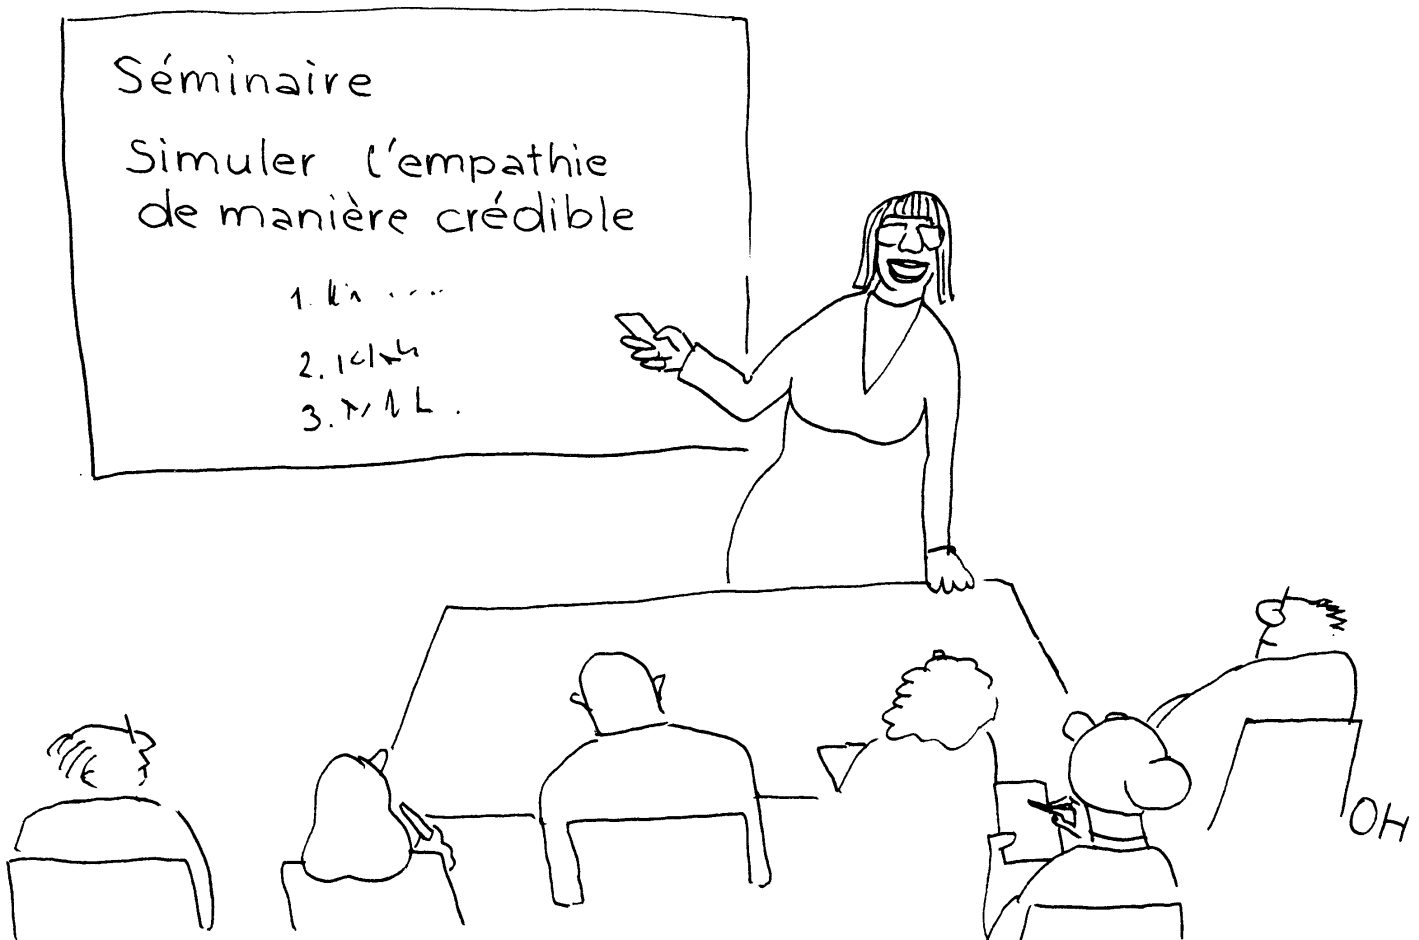 Séminaire
Simuler l'empathie
de manière crédible
1.
2.
3.
OH